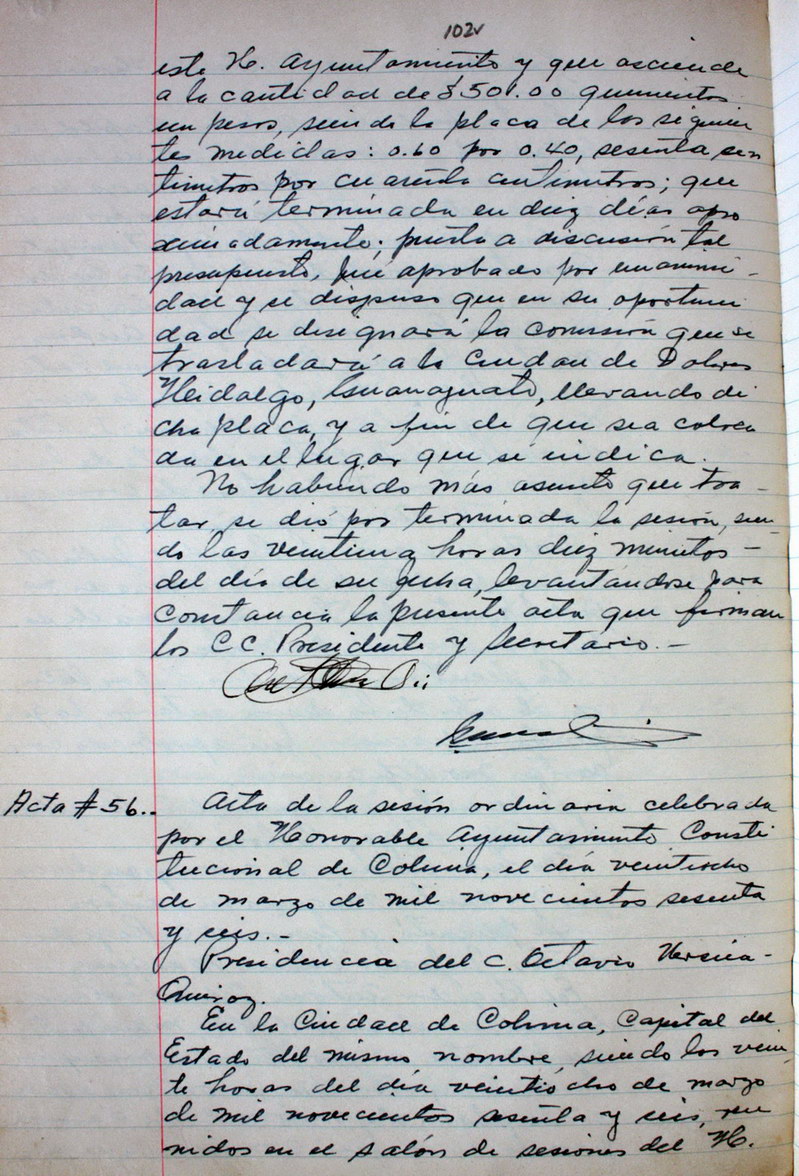 102v
este H. Ayuntamiento y que asciende
a la cantidad de $501.00 quinientos
un pesos, siendo la placa de las siguien
tes medidas: 0.60 por 0.40, sesenta cen
timetros por cuarenta centimetros; que
estará terminada en diez días apro
ximadamente; puesta a discusión tal
presupuesto, fué aprobado por unanimi-
dad y se dispuso que en su oportuni
dad se designará la comisión que se
trasladará a la Ciudad de Dolores
Hidalgo, Guanajuato, llevando di
cha placa, y a fin de que sea coloca
da en el lugar que se indica.
No habiendo más asunto que tra-
tar, se dió por terminada la sesión, sien-
do las veintiuna horas diez minutos-
del día de su fecha, levantándose para
constancia la presente acta que firman
los CC. Presidente y Secretario.-
Acta # 56..
Acta de la sesión ordinaria celebrada
por el Honorable Ayuntamiento Consti
tucional de Colima, el día veintiocho
de marzo de mil novecientos sesenta
y seis.-
Presidencia del C. Octavio
Quiroz.
En la Ciudad de Colima, Capital del
Estado del mismo nombre, siendo las vein
te horas del día veintiocho de marzo
de mil novecientos sesenta y seis, reu
nidos en el salón de sesiones del H.